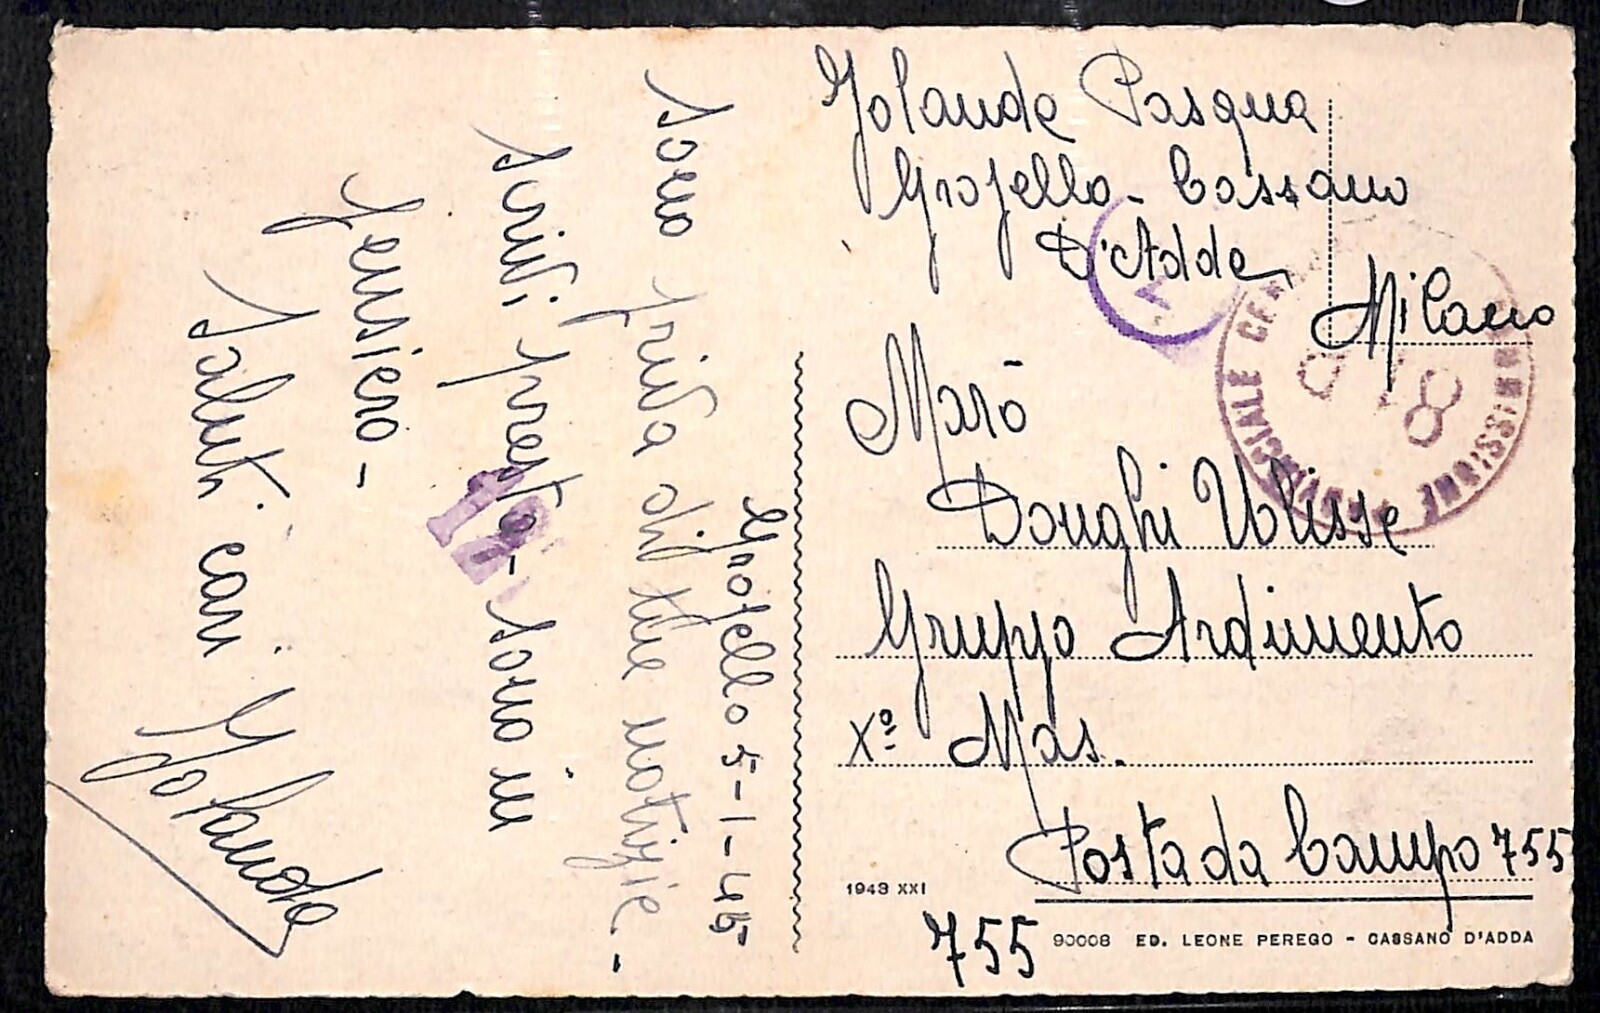 Yolanda Pasqua
Grosello - Cassano
D'Adda
Milano
Marò
Donghi Ulisse
Gruppo Ardimento
Xº Mas.
Posta da Campo 755
755
1943 XXI
90008 ED. LEONE PEREGO - CASSANO D'ADDA
Grosello 5-1-45
Sono priva di tue notizie. -
Scrivi presto - Sono in
pensiero -
Saluti cari
Yolanda
PROVINCIALE
COMMISSIONE
8